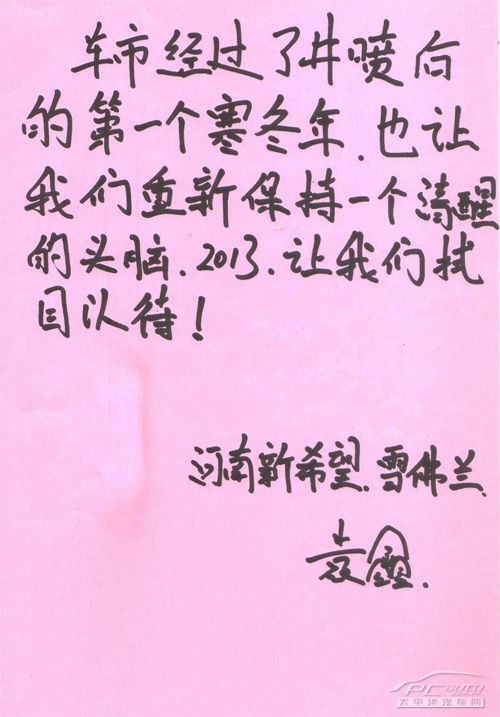 车市经过了井喷后
的第一个寒冬年.也让
我们重新保持一个清醒
的头脑.2013.让我们拭
目以待!
河南新希望.雪佛兰.
袁
PCauto
太平洋汽车网